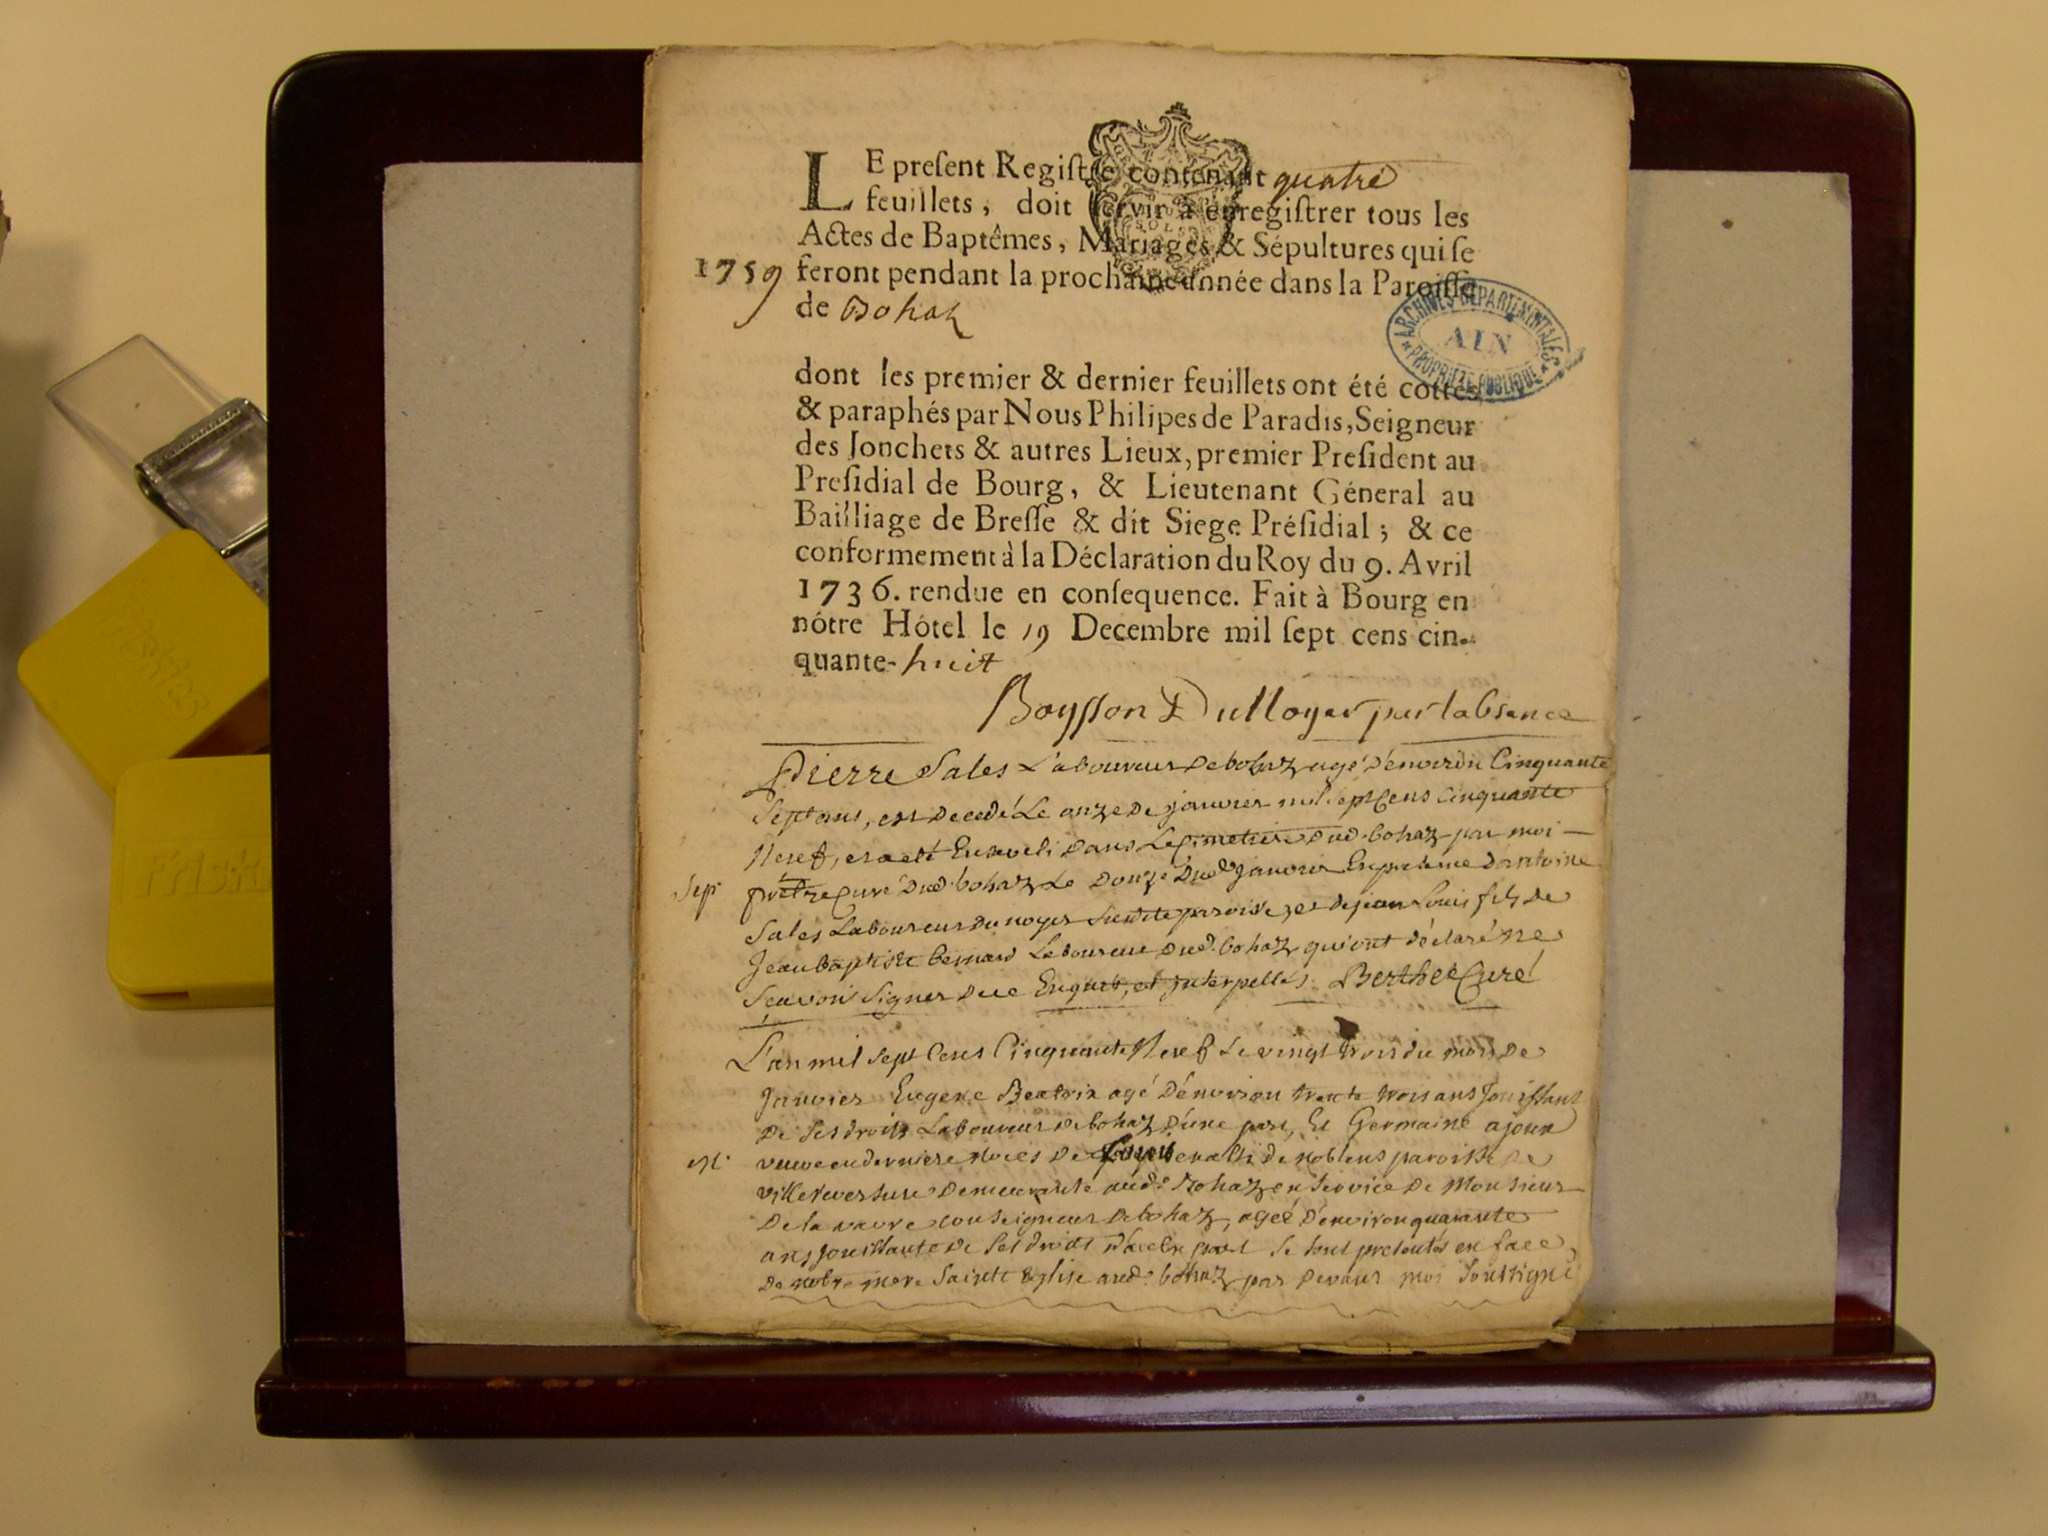 LE preſent Regiſtre contenant quatre
feuillets, doit ſervir à enregiſtrer tous les
Actes de Baptêmes, Mariages & Sépultures qui ſe
1759 feront pendant la prochaine année dans la Paroiſſe
de Bohaz
ARCHIVES DEPARTEMENTALES
AIN
PROPRIÉTÉ PUBLIQUE
dont les premier & dernier feuillets ont été cottés
& paraphés par Nous Philipes de Paradis, Seigneur
des Jonchets & autres Lieux, premier Preſident au
Preſidial de Bourg, & Lieutenant Géneral au
Bailliage de Breſſe & dit Siege Préſidial; & ce
conformement à la Déclaration du Roy du 9. Avril
1736. rendue en conſequence. Fait à Bourg en
nôtre Hôtel le 19 Decembre mil ſept cens cin-
quante-huit
par labsence
Pierre Sales Laboureur de bohaz agé d'environ Cinquante
Sept ans, est decedé Le onze de janvier mil sept Cens cinquante
Neuf, et a eté Enseveli dans Le Cimetiere dud. bohaz par moi
Sep. prêtre Curé dud. bohaz Le douze dud. janvier En presence d'antoine
Sales Laboureur du noyer Susdite paroisse, et de jean Louis fils de
Jean baptiste bernard Laboureur dud. bohaz qui ont déclaré ne
Sçavoir Signer de ce Enquis, et interpellés. Berthet Curé
L'an mil Sept Cens Cinquante Neuf Le vingt trois du mois de
Janvier Eugene Beatrix agé d'environ trente trois ans Jouissant
de Ses droits Laboureur de bohaz d'une part, Et Germaine ajoux
M. veuve en derniere noces de de noblens paroisse de
villereversure demeurante aud. Bohaz en Service de Monsieur
De la vavre conseigneur de bohaz, ageé d'environ quarante
ans jouissante de Ses droits d'autre part Se sont presentés en face
De notre mere Sainte Eglise aud. bohaz par devant moi Soussigné